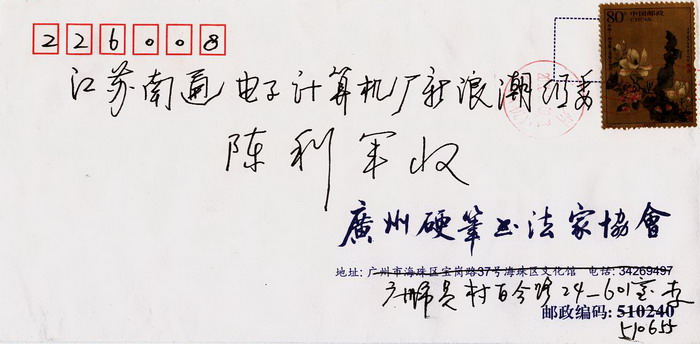 80分 中国邮政
CHINA
226008
江苏南通电子计算机厂新浪潮组委
陈利军收
廣州硬筆书法家協會
地址: 广州市海珠区宝岗路37号海珠区文化馆 电话: 34269497
广州市员村百合路24-601室 李
邮政编码: 510240
510655